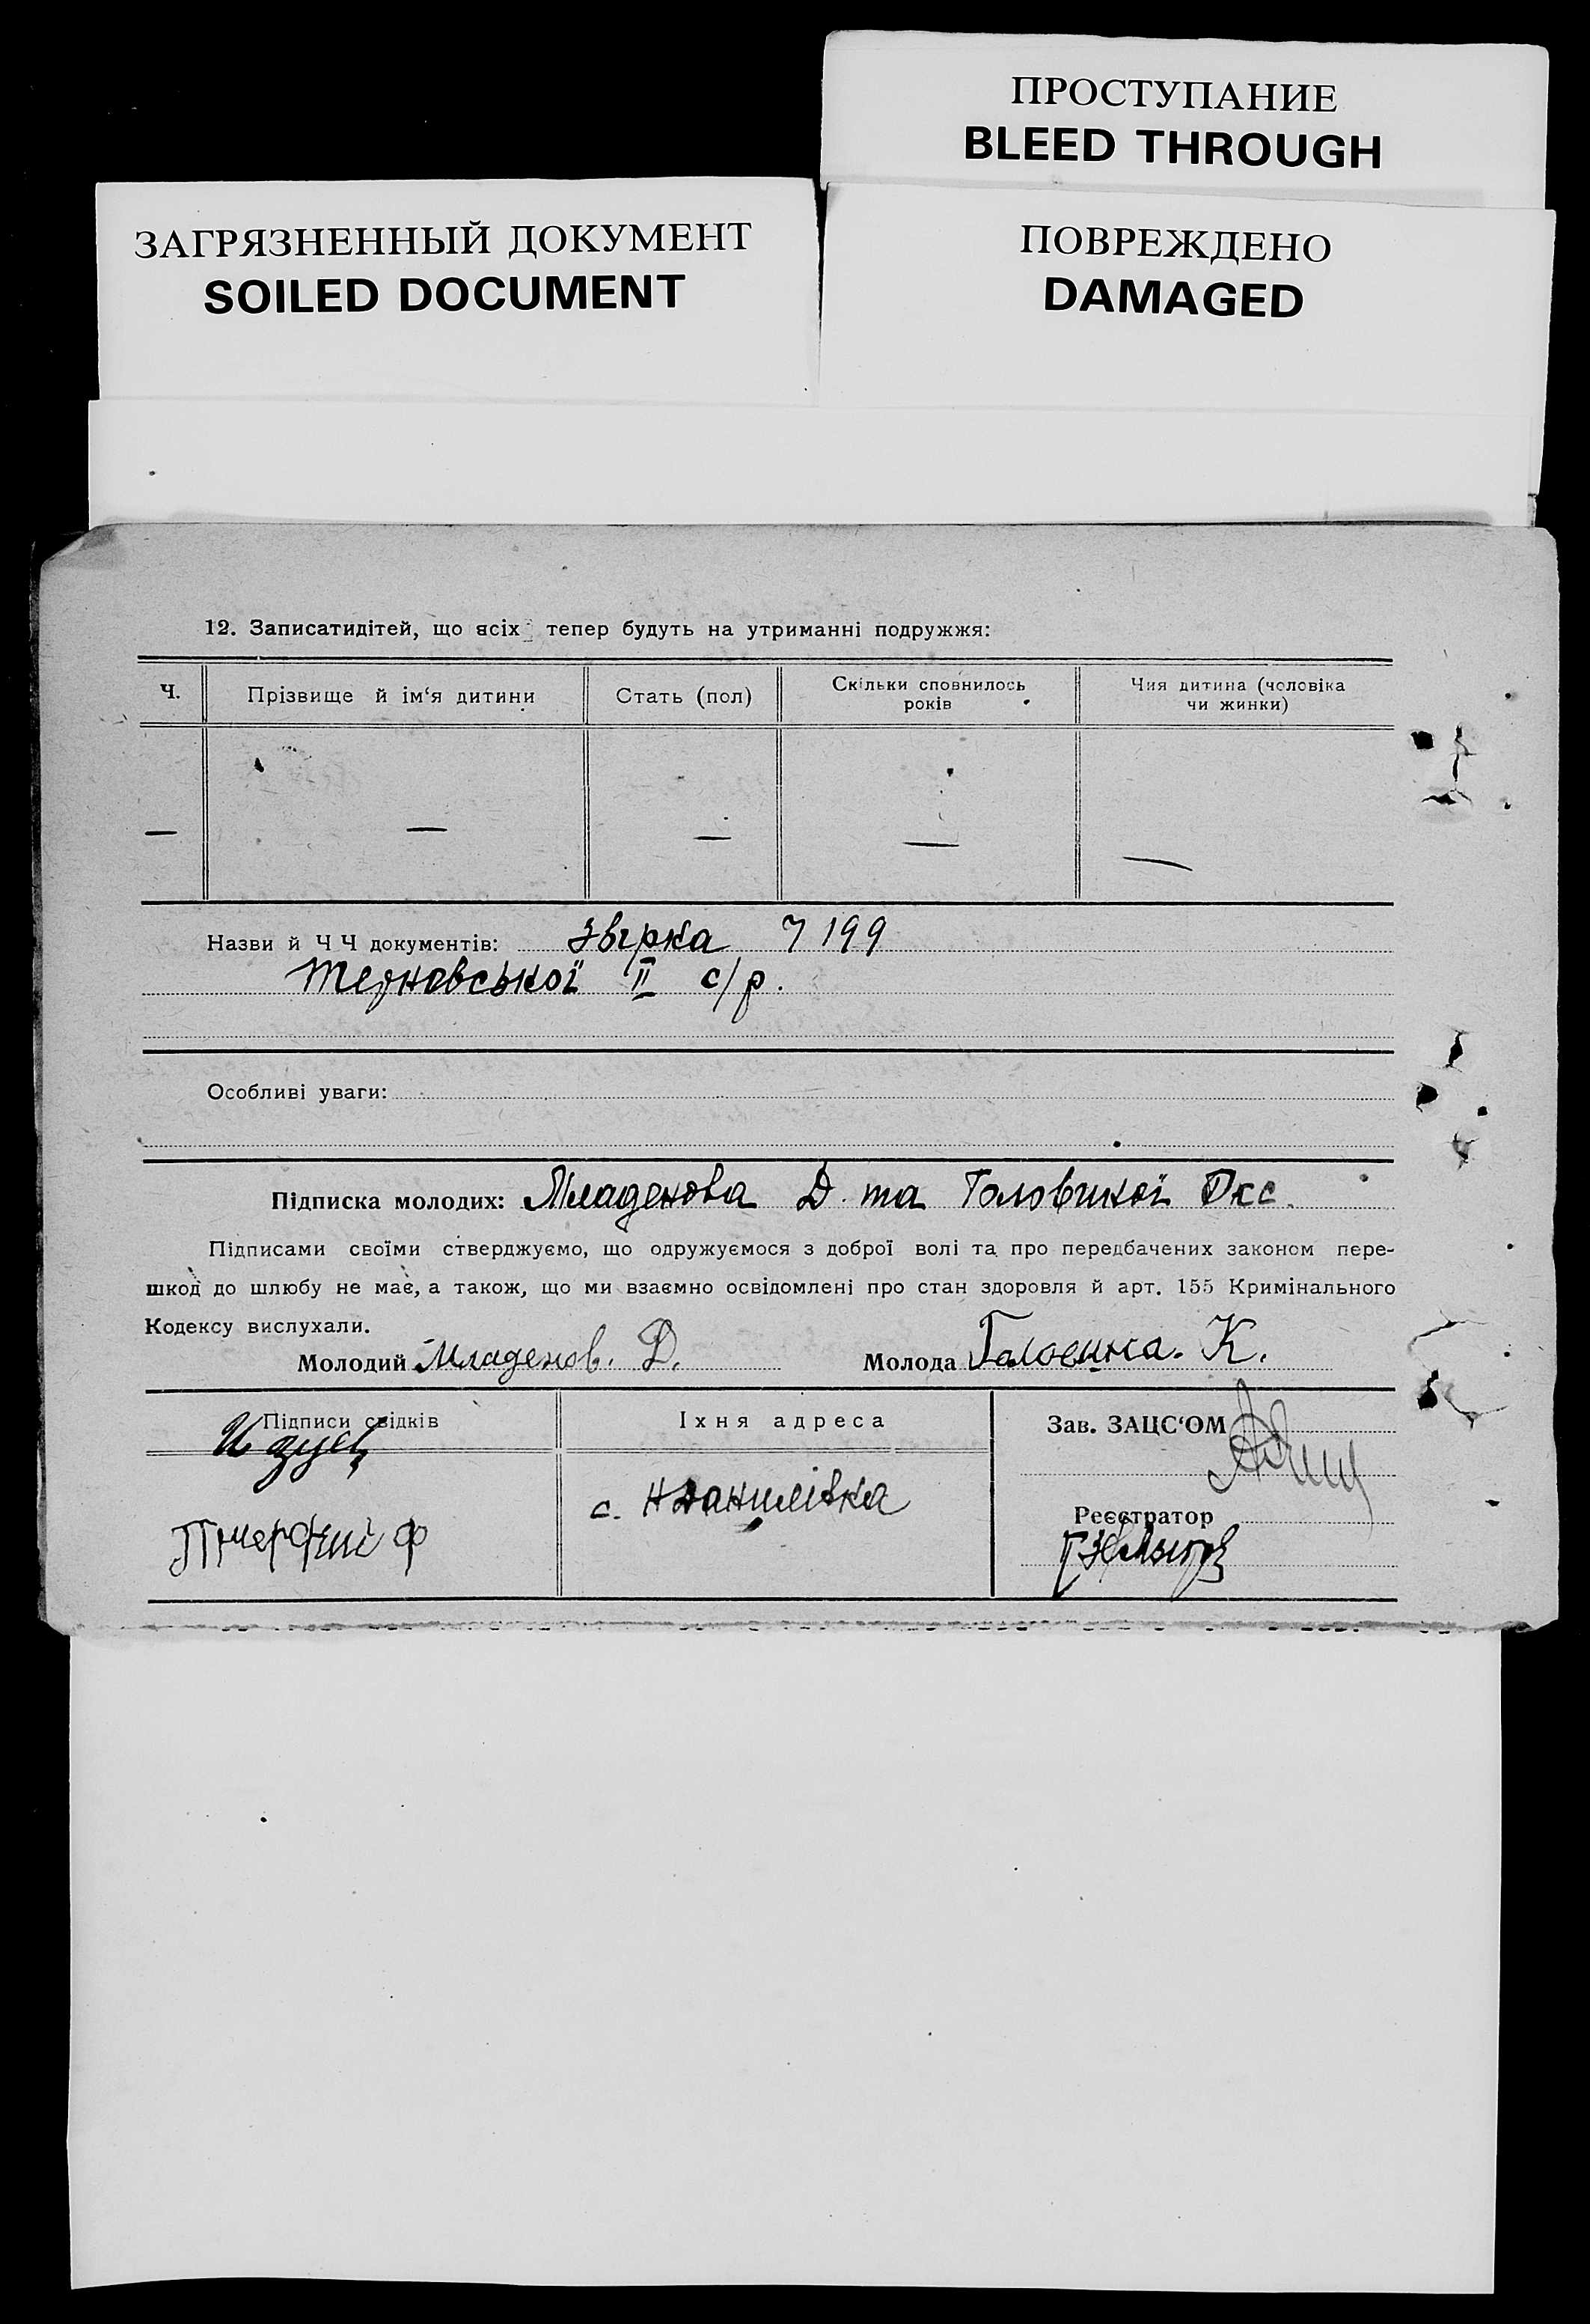 ПРОСТУПАНИЕ
BLEED THROUGH
ЗАГРЯЗНЕННЫЙ ДОКУМЕНТ
SOILED DOCUMENT
ПОВРЕЖДЕНО
DAMAGED
12. Записатидітей, що всіх тепер будуть на утриманні подружжя:
Ч.
Прізвище й ім‘я дитини
Стать (пол)
Скільки сповнилось
років
Чия дитина (чоловіка
чи жинки)
— — — — —
Назви й Ч Ч документів: Звірка 7 199
Терновської II с/р.
Особливі уваги:
Підписка молодих: Младенова Д. та Головкої Окс.
Підписами своїми стверджуємо, що одружуємося з доброї волі та про передбачених законом пере-
шкод до шлюбу не має, а також, що ми взаємно освідомлені про стан здоровля й арт. 155 Кримінального
Кодексу вислухали.
Молодий Младенов. Д.
Молода К.
Підписи свідків
Іхня адреса
с. Н Данилівка
Зав. ЗАЦС‘ОМ
Реєстратор